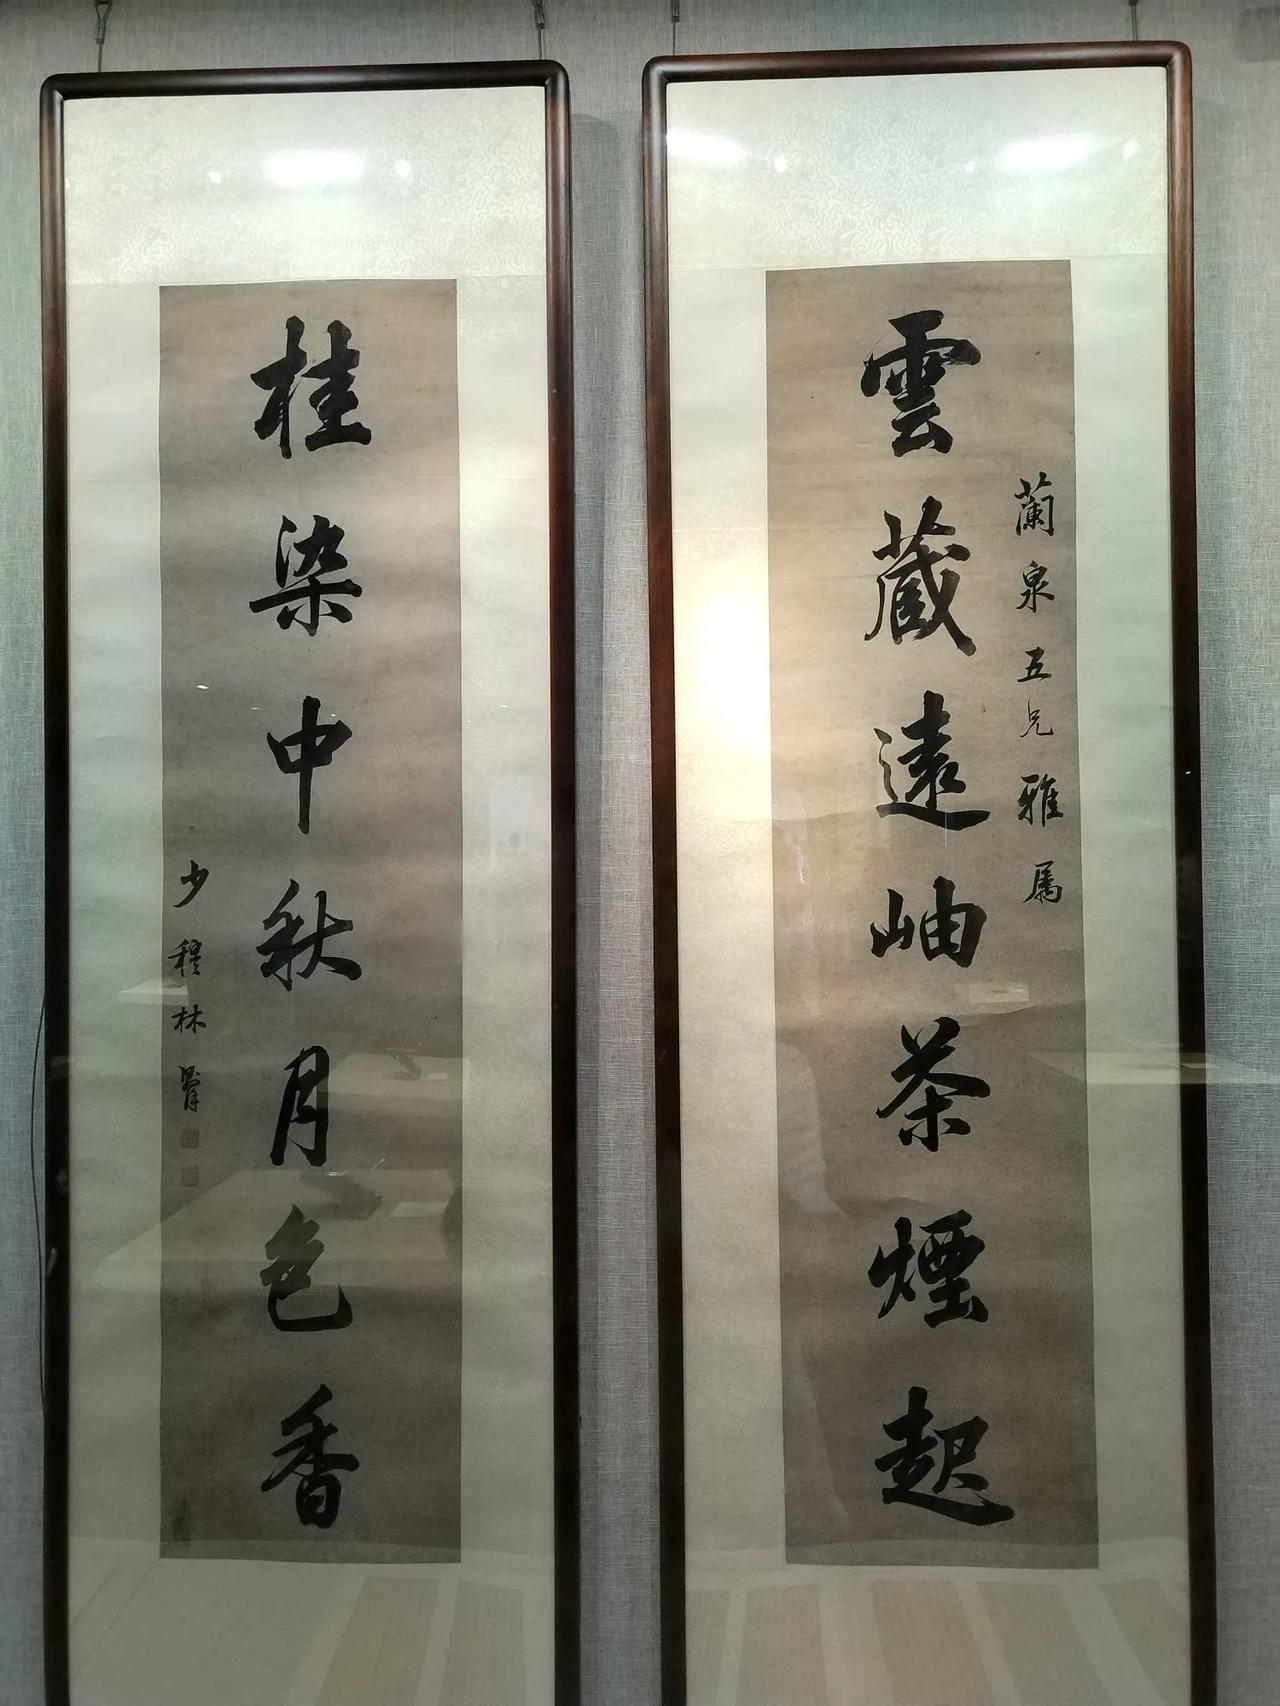 雲藏遠岫茶煙起
蘭泉五兄雅属
桂染中秋月色香
少穆林則徐